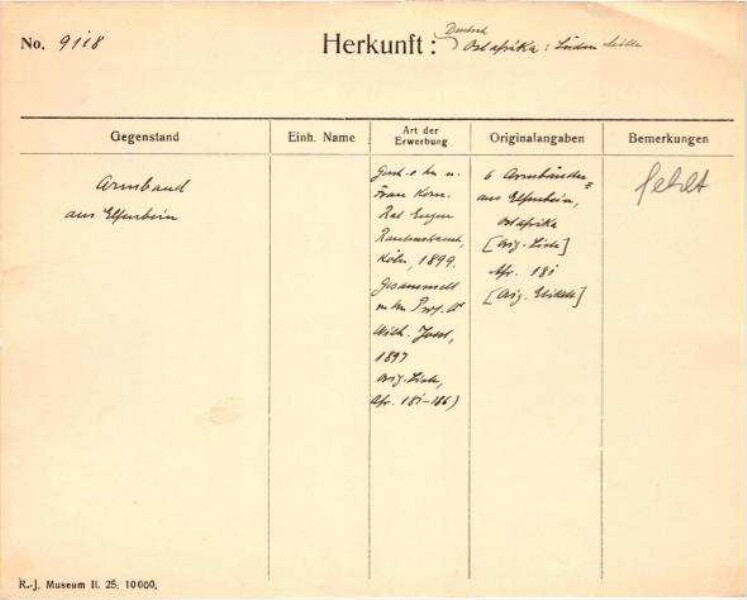 No. 9118
Herkunft: Deutsch
Ostafrika: Süden
Gegenstand
Einh. Name
Art der
Erwerbung
Originalangaben
Bemerkungen
Armband
aus Elfenbein
Frau Kom.
Rat Eugen
Rautenstrauch,
Köln, 1899.
Gesammelt
Prof. Dr
Wilh. Joest,
1897
Orig. Liste,
Afr. 181-186)
6 Armbänder
aus Elfenbein,
Ostafrika
[Orig. Liste]
Afr. 181
[Orig. Etikett]
fehlt
R.-J. Museum II. 25. 10000.